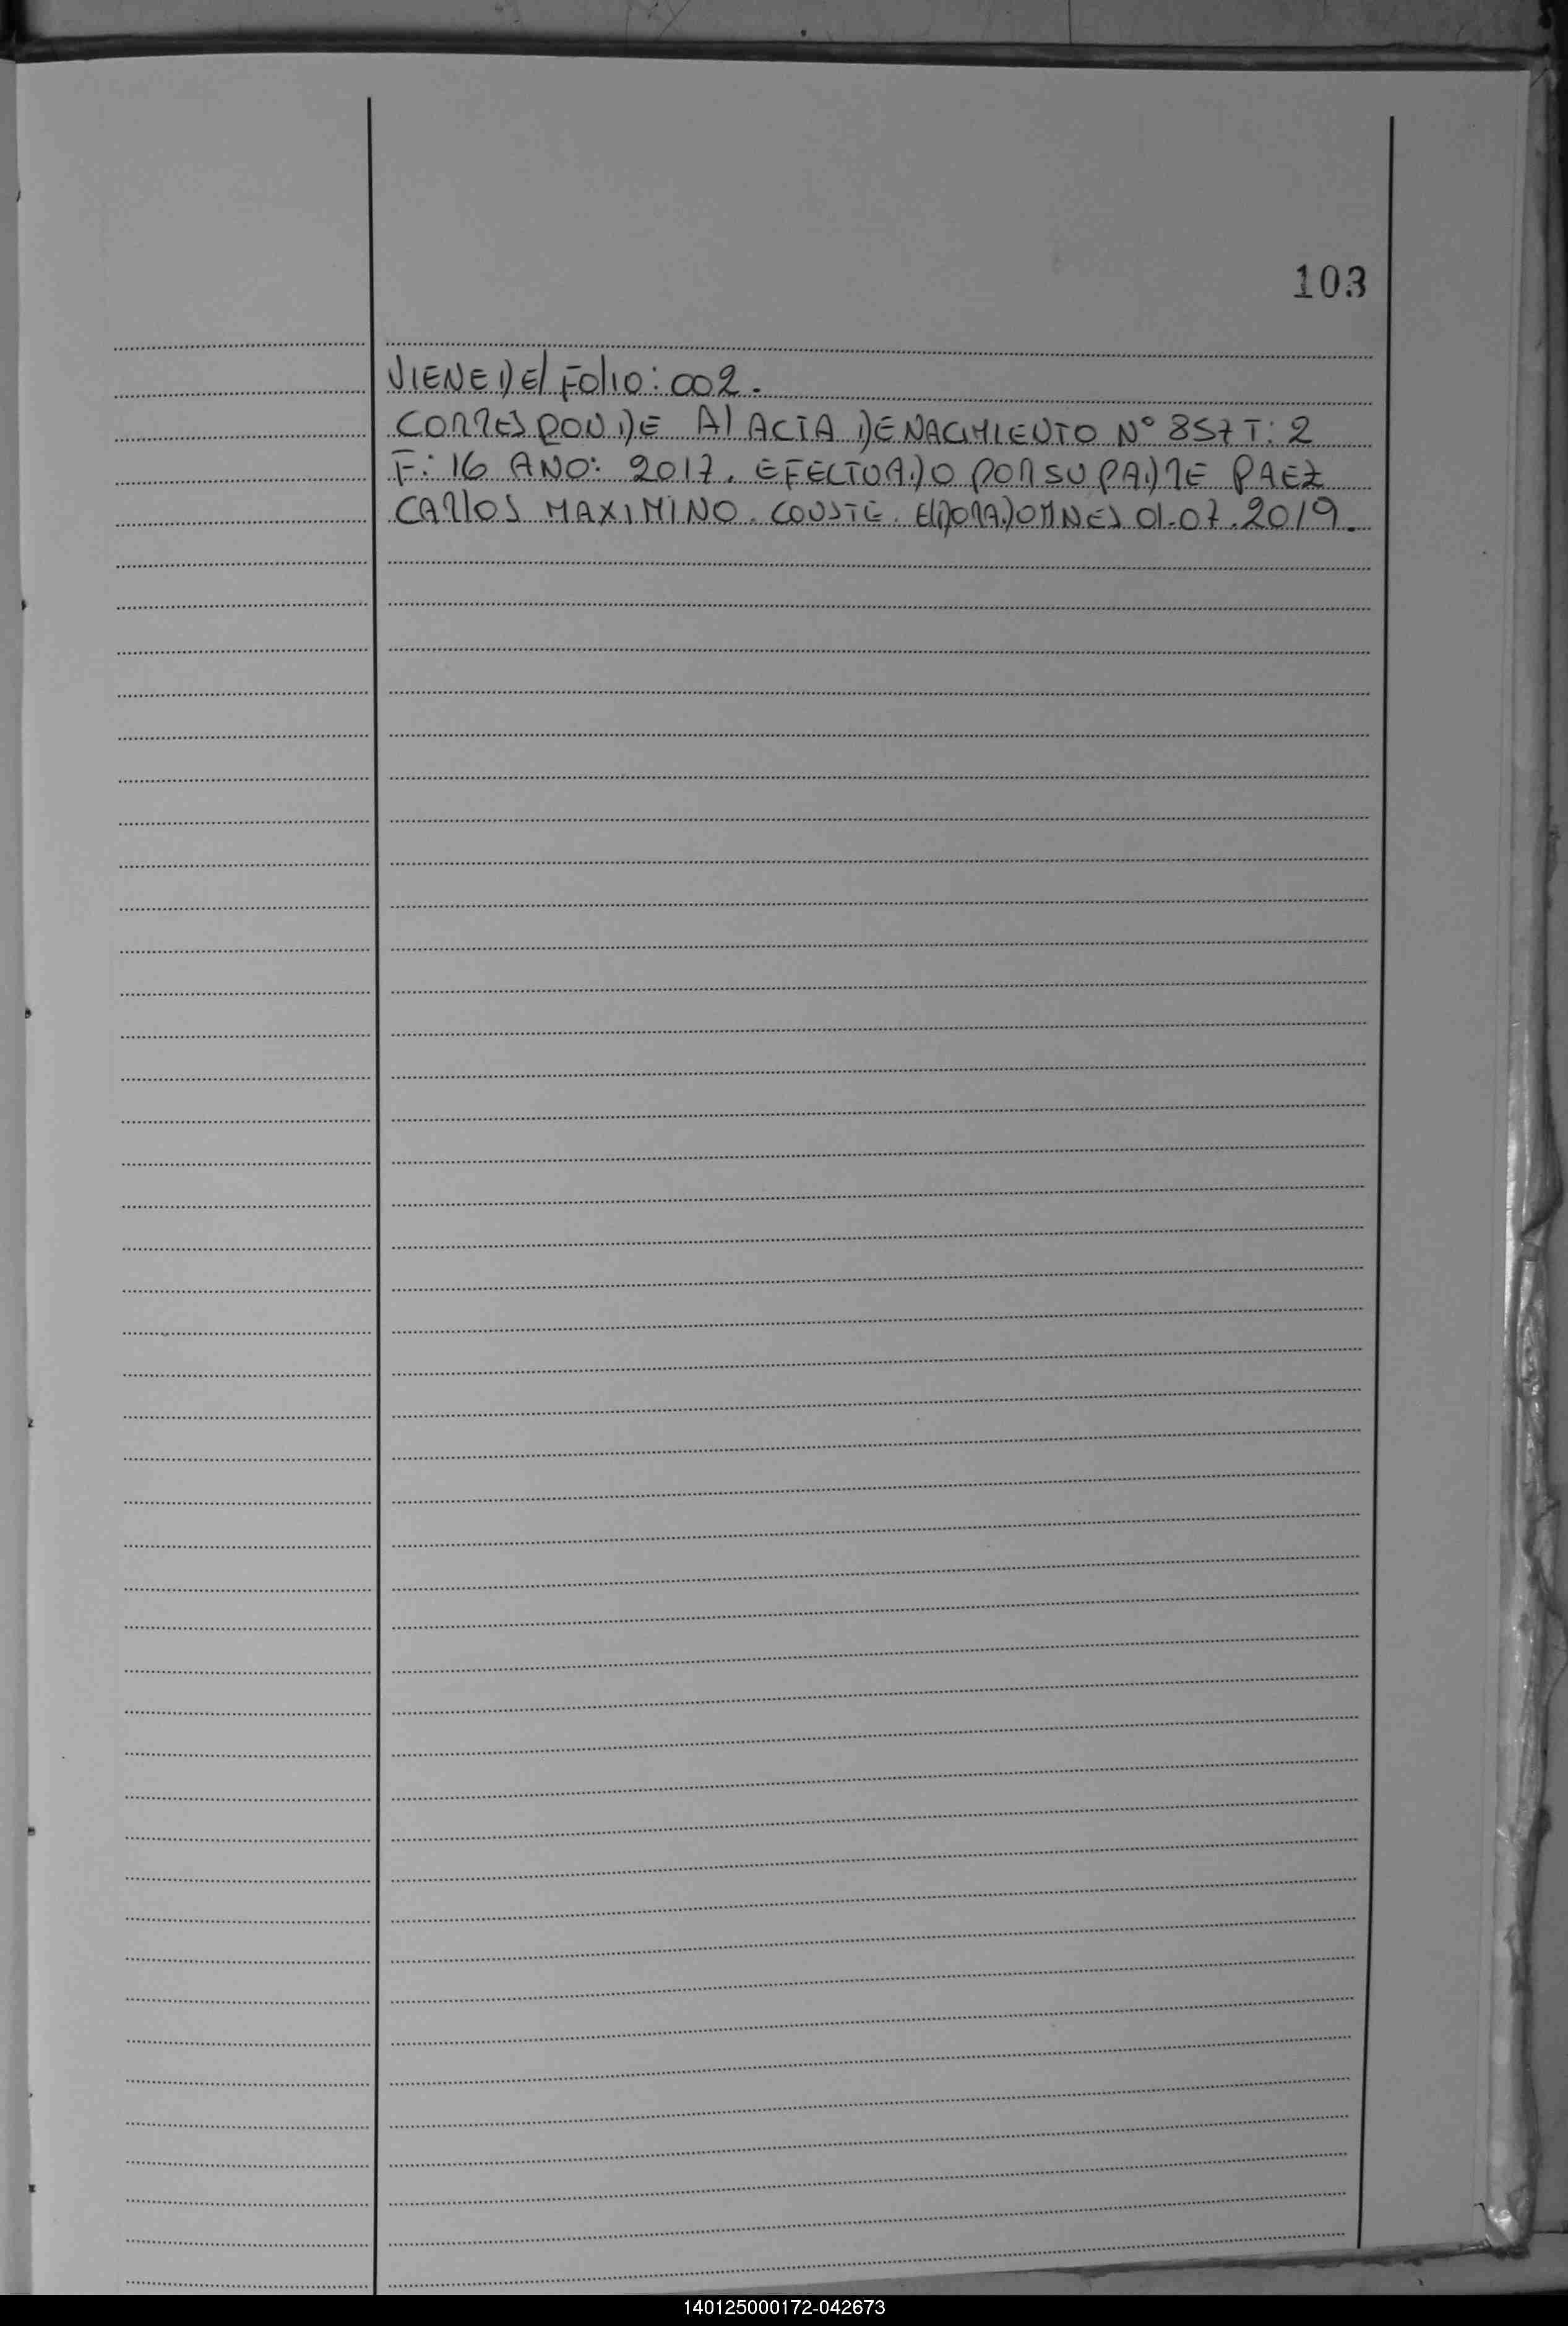 103
VIENE DEl FOlIO: 002.
CORRESPONDE Al ACTA DE NACIMIENTO N° 857 T: 2
F: 16 ANO: 2017. EFECTUADO POR SU PADRE PAEZ
CARlOS MAXIMINO. CONSTE. ElDORADO MNES 01.07.2019.
140125000172-042673